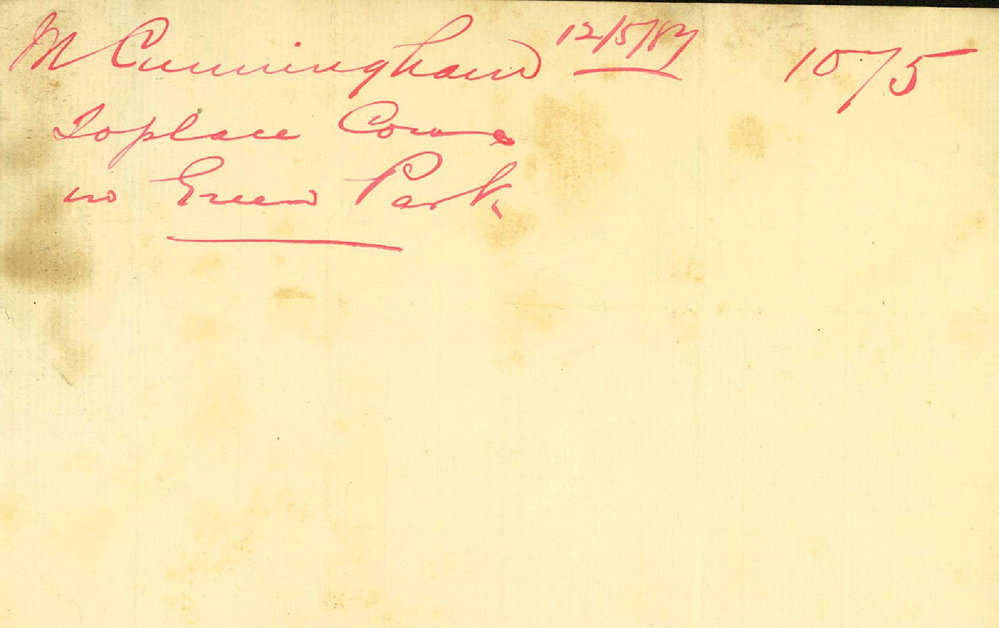 M Cunningham 12/5/87 1075
To place Cows
in Green Park